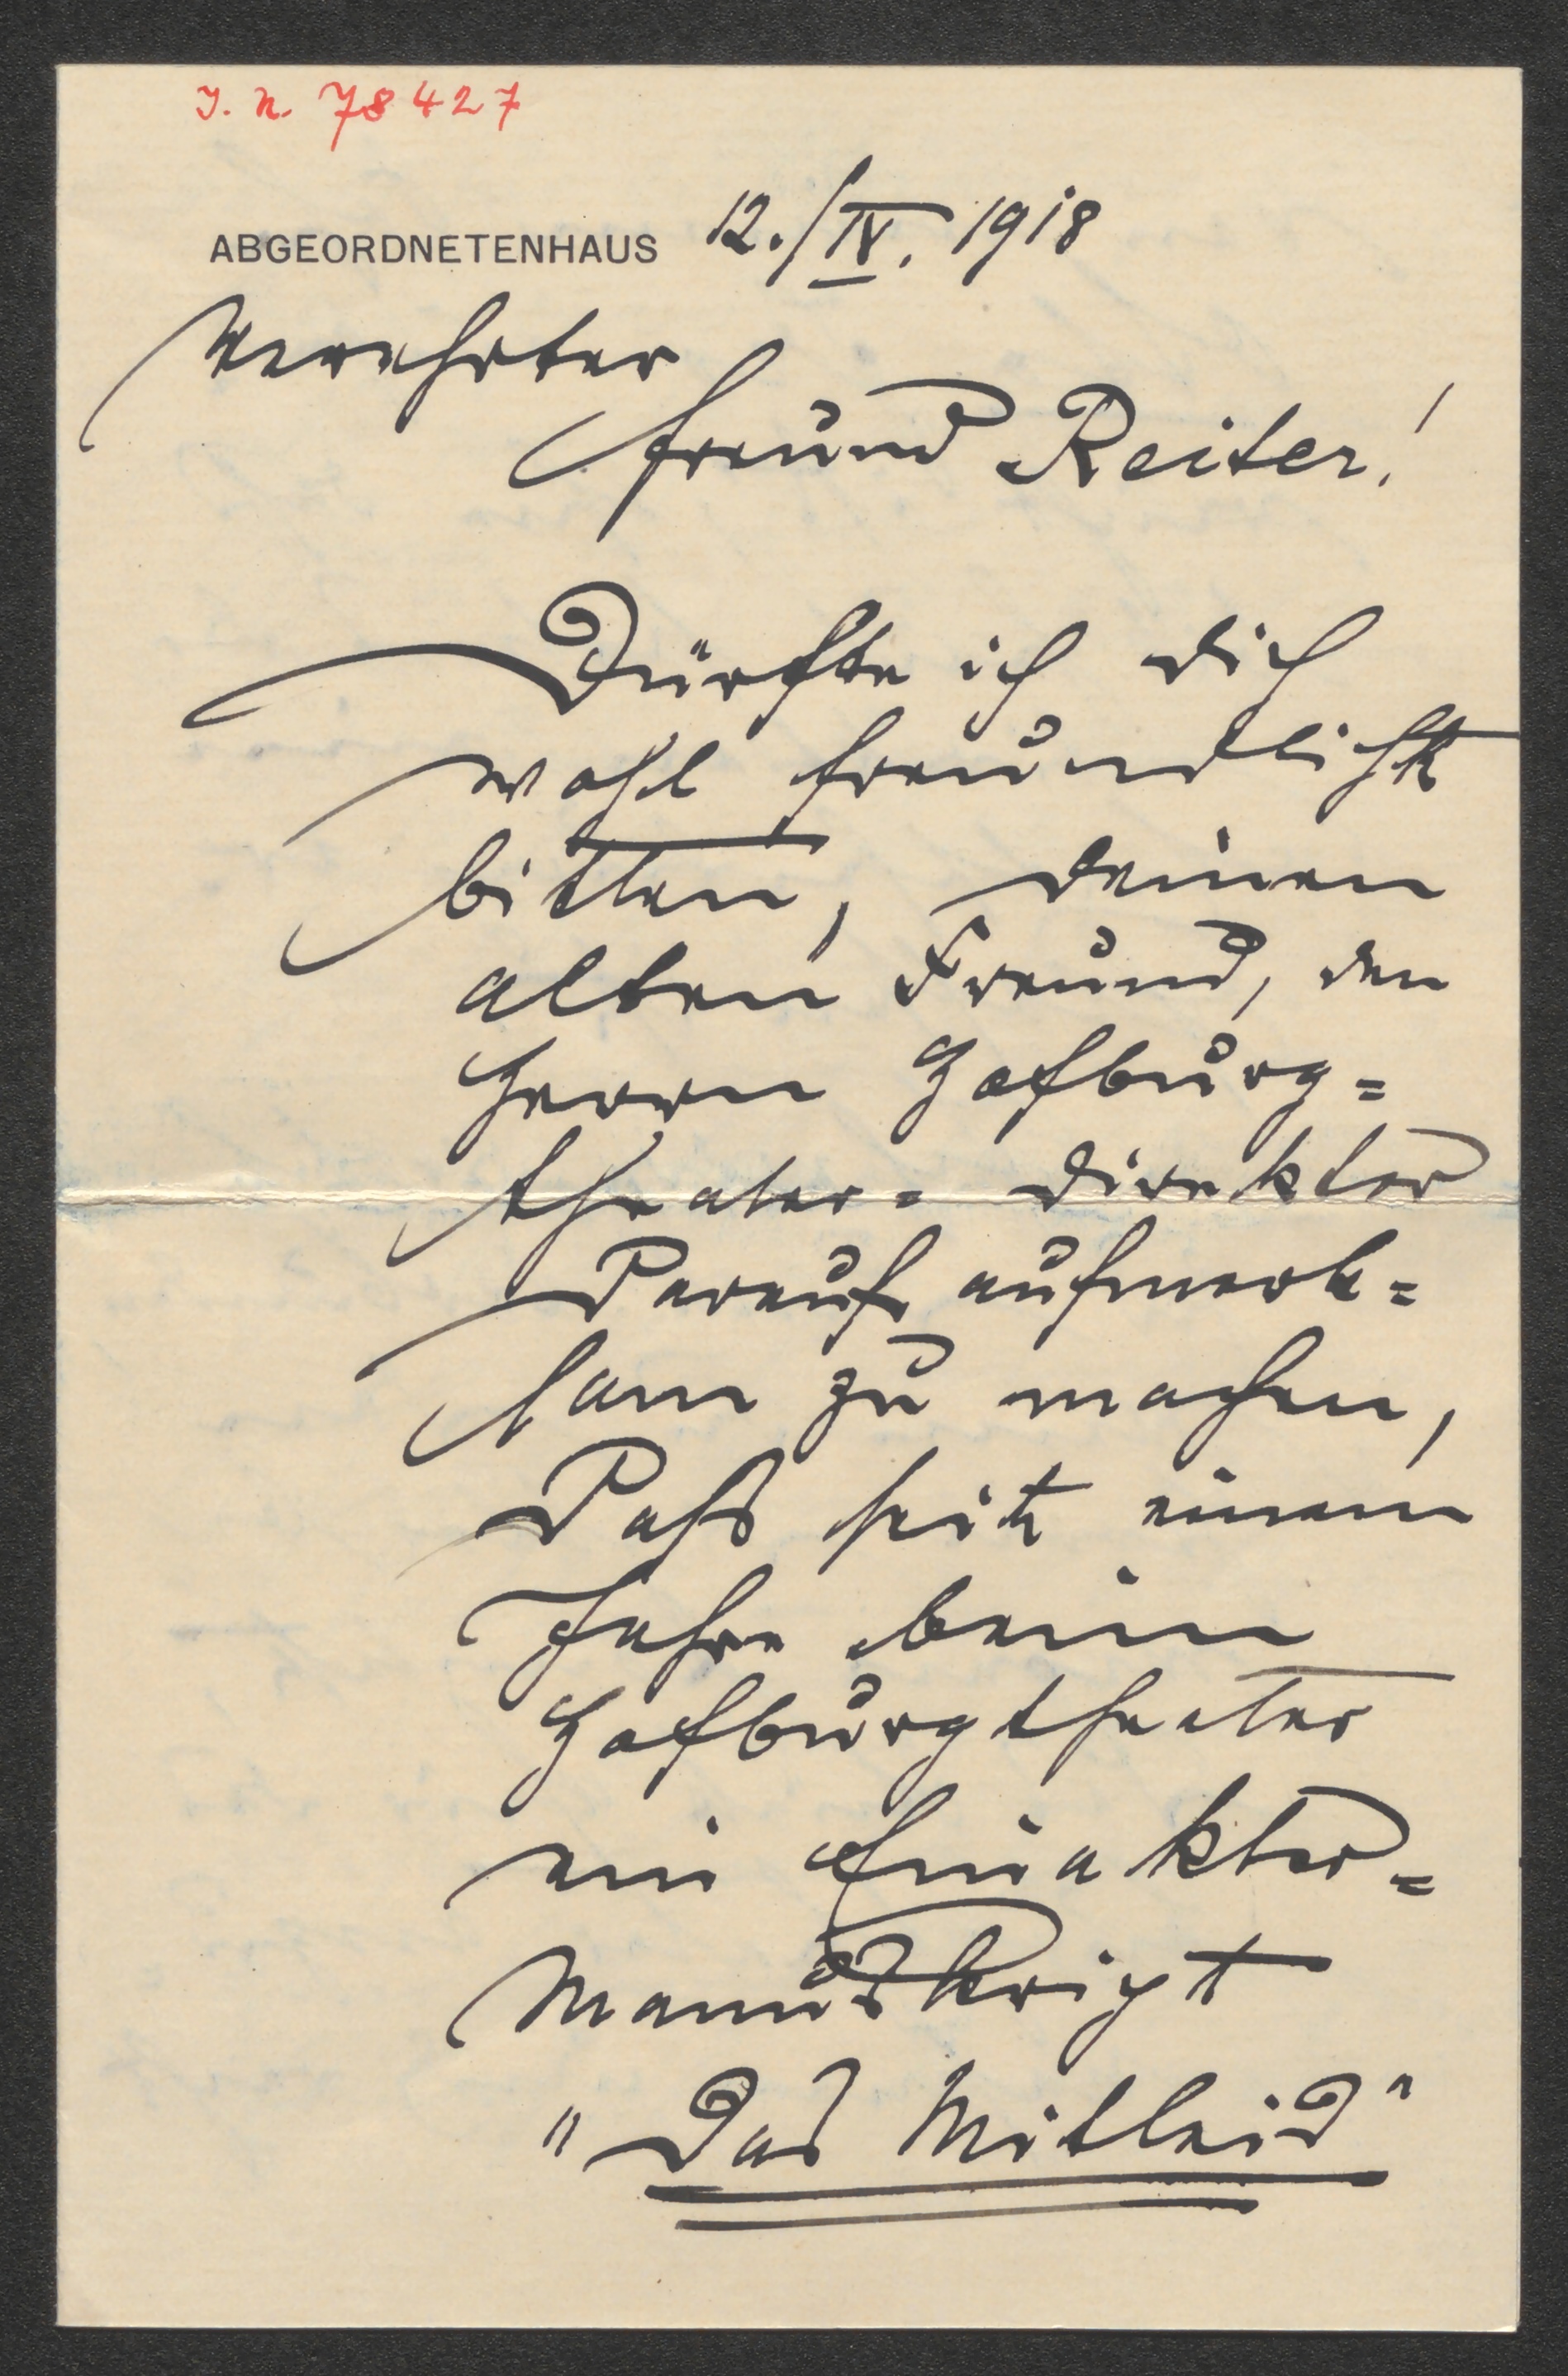 J. N. 78427
ABGEORDNETENHAUS 12./IV. 1918
Verehrter
Freund Reiter!
Dürfte ich dich
wohl freundlichst
bitten, deinen
alten Freund, den
Herrn Hofburg=
theater=direktor
darauf aufmerk=
sam zu machen,
daß seit einem
Jahre beim
Hofburgtheater
ein Einakter=
Manuskript
"Das Mitleid"